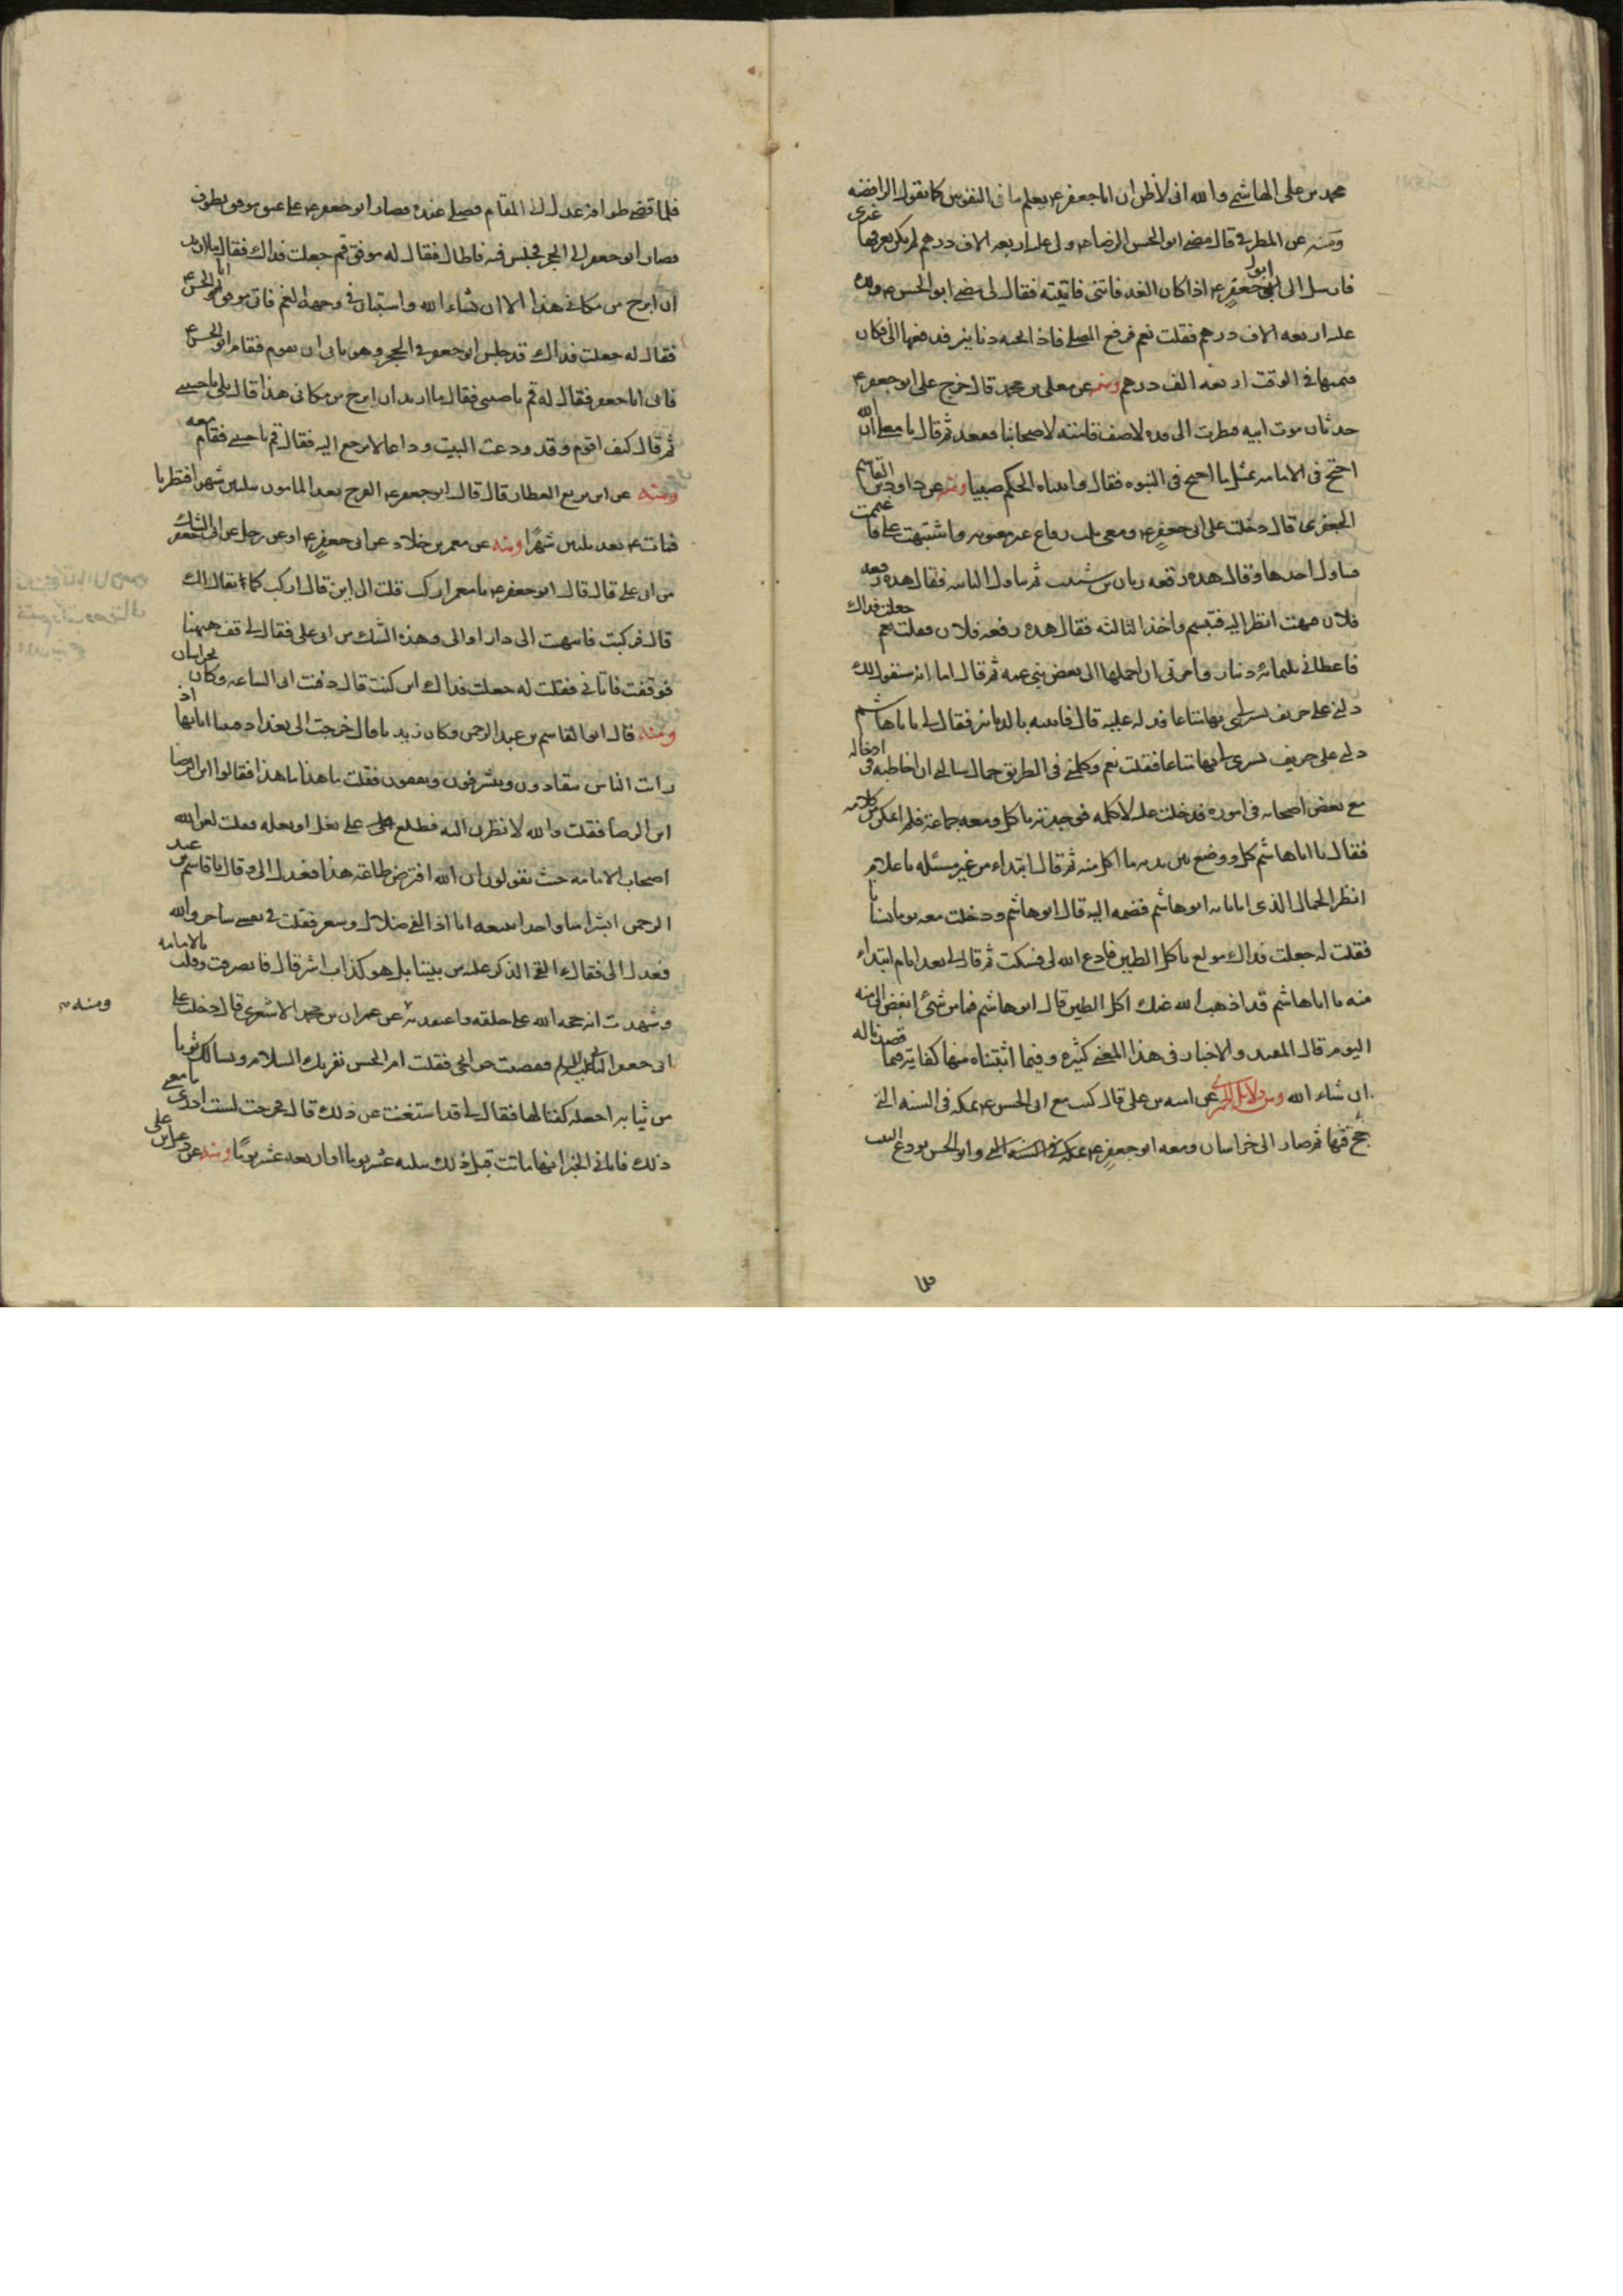 محمد بن علي الهاشمي والله اني لأظن ان اباجعفر ع يعلم ما في النفوس كما يقول الرافضه
ومنه عن المطرفي قال مضى ابو الحسن الرضا ع ولي عليه اربعه الاف درهم لم يكن يعرفها غيري
فارسل الي ابو جعفر ع اذا كان الغد فاتني فاتيته فقال لي مضى ابو الحسن ع ولك
عليه اربعه الاف درهم فقلت نعم فرفع المصلى فاذا تحته دنانير فدفعها الي فكان
قيمتها في الوقت اربعه الف درهم ومنه عن معلى بن محمد قال خرج على ابو جعفر ع
حدثان موت ابيه فنظرت الى قده لاصف قامته لاصحابنا فقعد ثم قال يا معلى ان الله
احتج في الامامه بمثل ما احتج في النبوه فقال واتيناه الحكم صبيا ومنه عن داود بن القاسم
الجعفري قال دخلت على ابي جعفر ع ومعي ثلث رقاع غير معنونه واشتبهت علي فاغتممت
فتناول احدها وقال هذه رقعه ريان بن شبيب ثم تناول الثانيه فقال هذه رقعه
فلان فبهت انظر اليه فتبسم واخذ الثالثه فقال هذه رقعه فلان فقلت نعم جعلت فداك
فاعطاني ثلثمائه دينار وامرني ان احملها الى بعض بني عمه ثم قال اما انه سيقول لك
دلني على حريف يشتري بها متاعا فدله عليه قال فاتيته بالدنانير فقال لي يا باهاشم
دلني على حريف يشتري لي بها متاعا فقلت نعم وكلمني في الطريق جمال سالني ان اخاطبه في ادخاله
مع بعض اصحابه في اموره فدخلت عليه لاكلمه فوجدته ياكل ومعه جماعة فلم اتمكن من كلامه
فقال يا اباهاشم كل ووضع بين يديه ما اكل منه ثم قال ابتداء من غير مسئله يا غلام
انظر الجمال الذي اتانا به ابو هاشم فضمه اليه قال ابو هاشم ودخلت معه يوما بستانا
فقلت له جعلت فداك مولع باكل الطين فادع الله لي فسكت ثم قال لي بعد ايام ابتداء
منه يا اباهاشم قد اذهب الله عنك اكل الطين قال ابو هاشم فما من شيئ ابغض الي منه
اليوم قال المفيد والاخبار في هذا المعنى كثيره وفيما اثبتناه منها كفاية فيما قصدنا له
ان شاء الله ومن دلائل الحميري عن اميه بن علي قال كنت مع ابي الحسن ع بمكه في السنه التي
حج فيها ثم صار الى خراسان ومعه ابو جعفر ع وابو الحسن يودع البيت
فلما قضى طوافه عدل الى المقام فصلى عنده فصار ابو جعفر ع على عنق موفق يطوف
فصار ابو جعفر الى الحجر فجلس فيه فاطال فقال له موفق قم جعلت فداك فقال ما اريد
ان ابرح من مكاني هذا الا ان شاء الله واستبان في وجهه الغم فاتى موفق ابا الحسن ع
فقال له جعلت فداك قد جلس ابو جعفر في الحجر وهو يابى ان يقوم فقام ابو الحسن ع
فاتى ابا جعفر فقال له قم يا حبيبي فقال ما اريد ان ابرح من مكاني هذا قال بلى يا حبيبي
ثم قال كيف اقوم وقد ودعت البيت وداعا لا يرجع اليه فقال قم يا حبيبي فقام معه
ومنه عن ابن بزيع العطار قال قال ابو جعفر ع الفرج بعد المامون بثلثين شهرا فنظرنا
فمات ع بعد ثلثين شهرًا ومنه عن معمر بن خلاد عن ابي جعفر ع او عن رجل عن ابي جعفر الشك
من ابي علي قال قال ابو جعفر ع يا معمر اركب قلت الى اين قال اركب كما يقال لك
قال فركبت فانتهيت الى دار او الى وهذه الشك من ابي علي فقال لي قف ههنا
فوقفت فاتاني فقلت له جعلت فداك اين كنت قال دفنت ابي الساعه وكان بخراسان
ومنه قال ابو القاسم بن عبد الرحمن وكان زيديا قال خرجت الى بغداد فبينا انا بها اذ
رايت الناس يتعادون ويتشرفون ويقفون فقلت ما هذا ما هذا فقالوا ابن الرضا
ابن الرضا فقلت والله لانظرن اليه فطلع على بغل او بغله فقلت لعن الله
اصحاب الامامه حيث يقولون ان الله افترض طاعة هذا فعدل الي وقال يا قاسم بن عبد
الرحمن ابشرا منا واحدا نتبعه انا اذا لفي ضلال وسعر فقلت في نفسي ساحر والله
فعدل الي فقال ءالقي الذكر عليه من بيننا بل هو كذاب اشر قال فانصرفت وقلت بالامامه
وشهدت انه حجه الله على خلقه واعتقدته عن عمران بن محمد الاشعري قال دخلت على
ومنه
ابي جعفر الثاني فقضيت حوائجي فقلت ام الحسن تقريك السلام وتسالك ثوبا
من ثيابه اجعله كفنا لها فقال لي قد استغنت عن ذلك قال فخرجت لست ادري ما معنى
ذلك فاتاني الخبر انها ماتت قبل ذلك بثلثه عشر يوما او اربعه عشر يومًا ومنه عن دعبل بن على